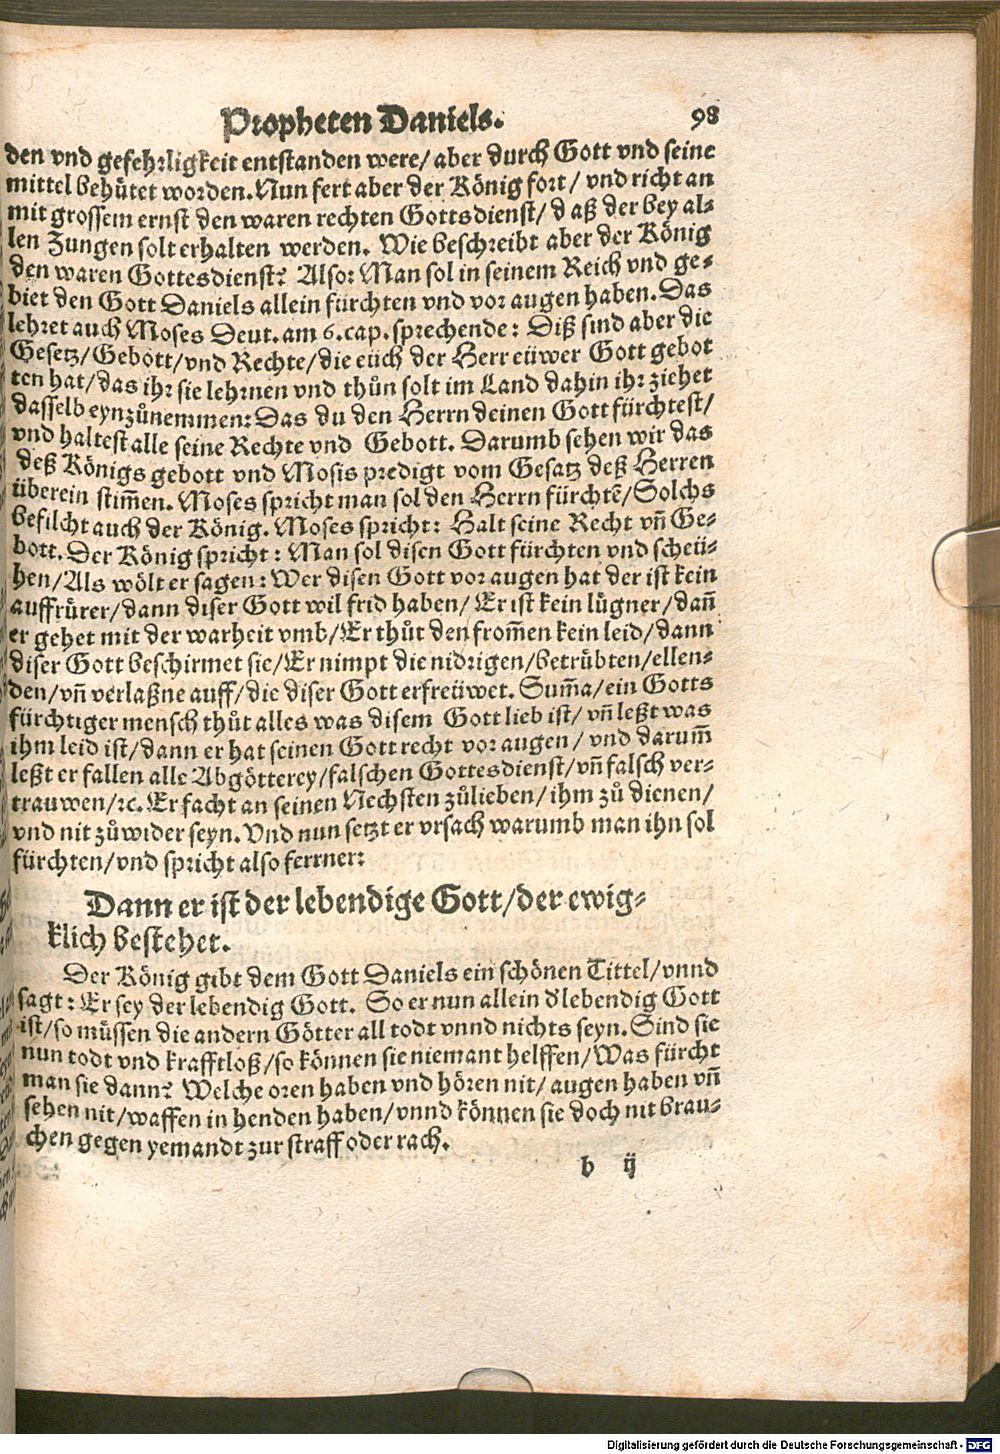 Propheten Daniels. 98
den vnd gefehrligkeit entstanden were/ aber durch Gott vnd seine
mittel behütet worden. Nun fert aber der König fort/ vnd richt an
mit grossem ernst den waren rechten Gottsdienst/ daß der bey al⸗
len Zungen solt erhalten werden. Wie beschreibt aber der König
den waren Gottesdienst? Also: Man sol in seinem Reich vnd ge⸗
biet den Gott Daniels allein fürchten vnd vor augen haben. Das
lehret auch Moses Deut. am 6. cap. sprechende: Diß sind aber die
Gesetz/ Gebott/ vnd Rechte/ die eüch der Herr eüwer Gott gebot
ten hat/ das ihr sie lehrnen vnd thůn solt im Land dahin ihr ziehet
dasselb eynzůnemmen: Das du den Herrn deinen Gott fürchtest/
vnd haltest alle seine Rechte vnd Gebott. Darumb sehen wir das
deß Königs gebott vnd Mosis predigt vom Gesatz deß Herren
überein stim̄en. Moses spricht man sol den Herrn fürchtē/ Solchs
befilcht auch der König. Moses spricht: Halt seine Recht vn̄ Ge⸗
bott. Der König spricht: Man sol disen Gott fürchten vnd scheü⸗
hen/ Als wölt er sagen: Wer disen Gott vor augen hat der ist kein
auffrürer/ dann diser Gott wil frid haben/ Er ist kein lügner/ dan̄
er gehet mit der warheit vmb/ Er thůt den from̄en kein leid/ dann
diser Gott beschirmet sie/ Er nimpt die nidrigen/ betrübten/ ellen⸗
den/ vn̄ verlaßne auff/ die diser Gott erfreüwet. Sum̄a/ ein Gotts
fürchtiger mensch thůt alles was disem Gott lieb ist/ vn̄ leßt was
ihm leid ist/ dann er hat seinen Gott recht vor augen/ vnd darum̄
leßt er fallen alle Abgötterey/ falschen Gottesdienst/ vn̄ falsch ver⸗
trauwen/ ꝛc. Er facht an seinen Nechsten zůlieben/ ihm zů dienen/
vnd nit zůwider seyn. Vnd nun setzt er vrsach warumb man ihn sol
fürchten/ vnd spricht also ferrner:
Dann er ist der lebendige Gott/ der ewig⸗
klich bestehet.
Der König gibt dem Gott Daniels ein schönen Tittel/ vnnd
sagt: Er sey der lebendig Gott. So er nun allein d' lebendig Gott
ist/ so müssen die andern Götter all todt vnnd nichts seyn. Sind sie
nun todt vnd krafftloß/ so können sie niemant helffen/ Was fürcht
man sie dann? Welche oren haben vnd hören nit/ augen haben vn̄
sehen nit/ waffen in henden haben/ vnnd können sie doch nit brau⸗
chen gegen yemandt zur straff oder rach.
b ij
Digitalisierung gefördert durch die Deutsche Forschungsgemeinschaft - DFG